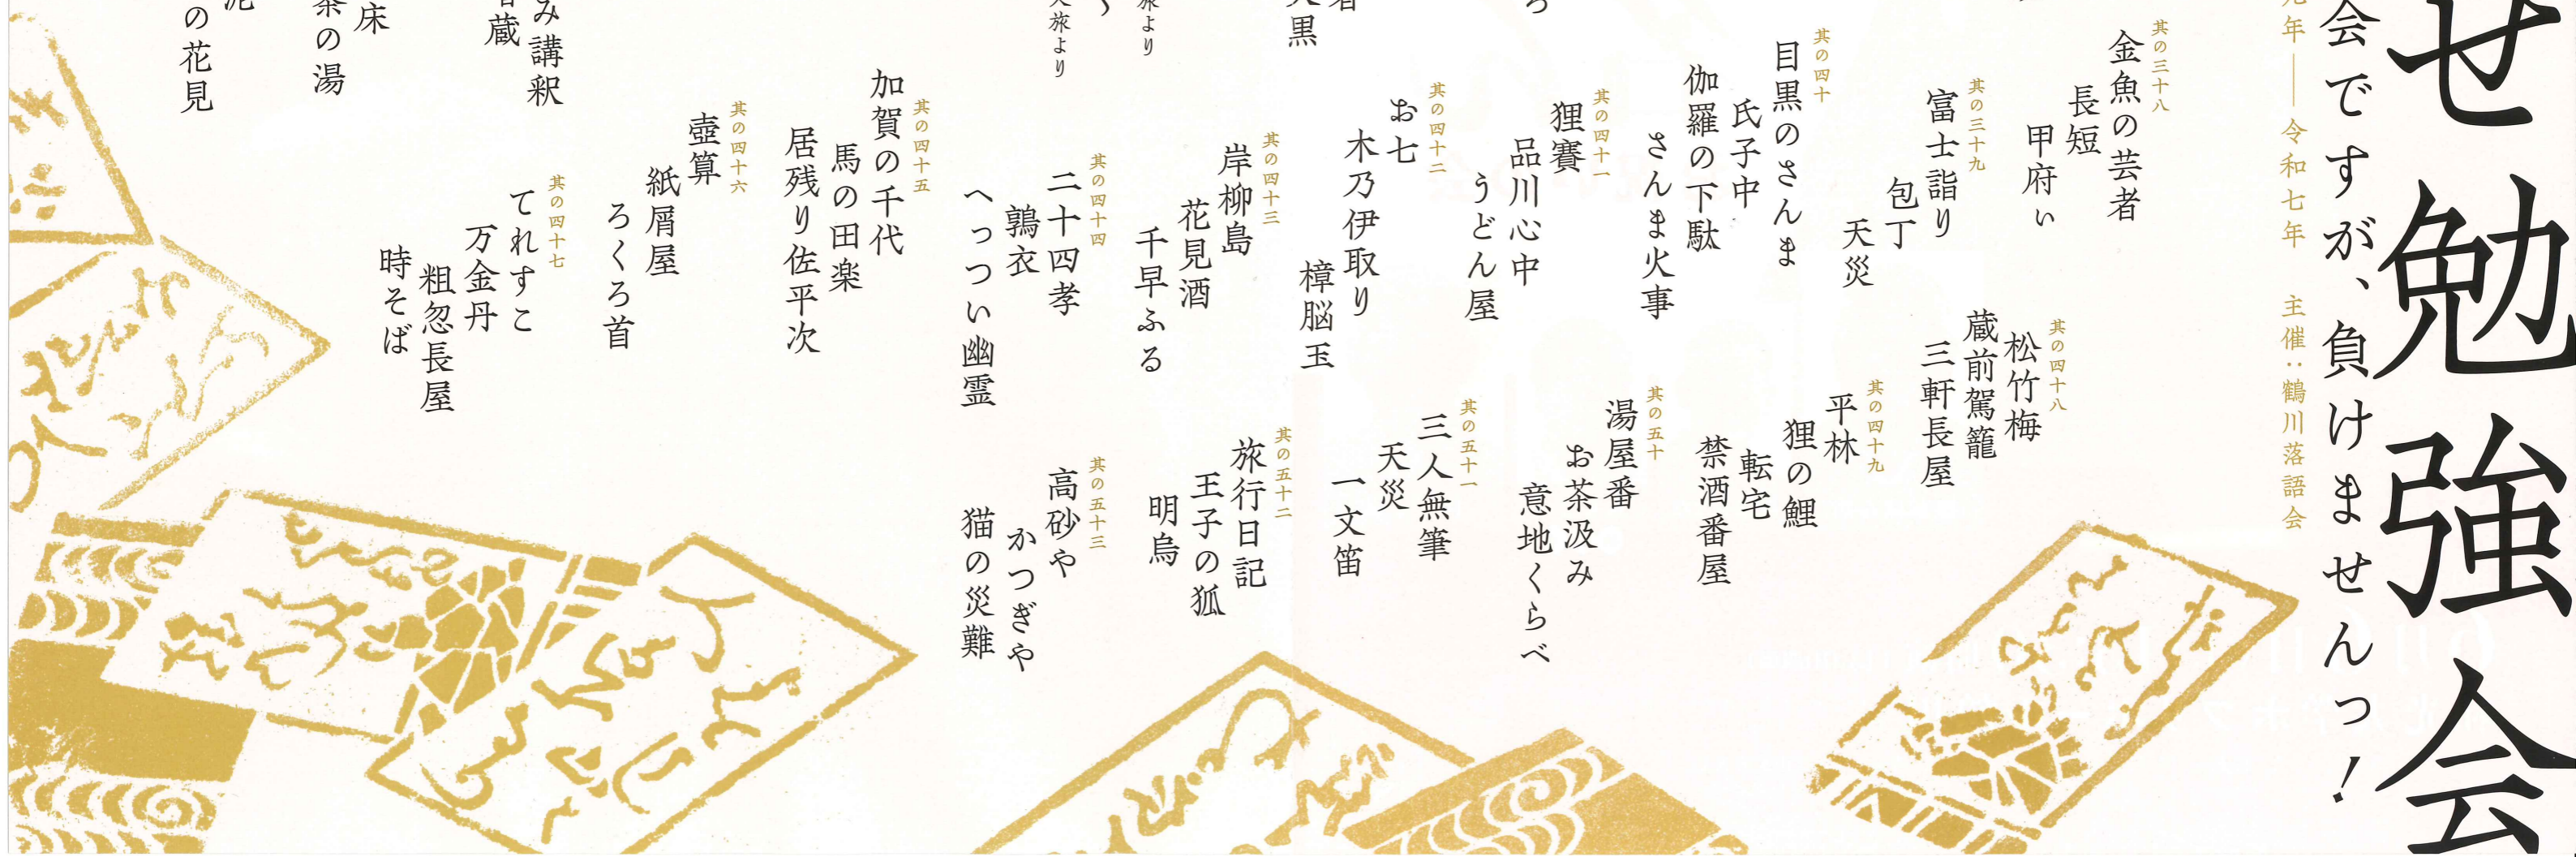 せ勉強会
会ですが、負けませんっ！
元年――令和七年　主催：鶴川落語会
其の三十八
金魚の芸者
長短
甲府ぃ
其の三十九
富士詣り
包丁
天災
其の四十
目黒のさんま
氏子中
伽羅の下駄
さんま火事
其の四十一
狸賽
品川心中
うどん屋
其の四十二
お七
木乃伊取り
樟脳玉
大黒
其の四十三
岸柳島
花見酒
千早ふる
旅より
旅より
其の四十四
二十四孝
鶉衣
へっつい幽霊
其の四十五
加賀の千代
馬の田楽
居残り佐平次
其の四十六
壺算
紙屑屋
ろくろ首
み講釈
蔵
其の四十七
てれすこ
万金丹
粗忽長屋
時そば
床
茶の湯
の花見
其の四十八
松竹梅
蔵前駕籠
三軒長屋
其の四十九
平林
狸の鯉
転宅
禁酒番屋
其の五十
湯屋番
お茶汲み
意地くらべ
其の五十一
三人無筆
天災
一文笛
其の五十二
旅行日記
王子の狐
明烏
其の五十三
高砂や
かつぎや
猫の災難